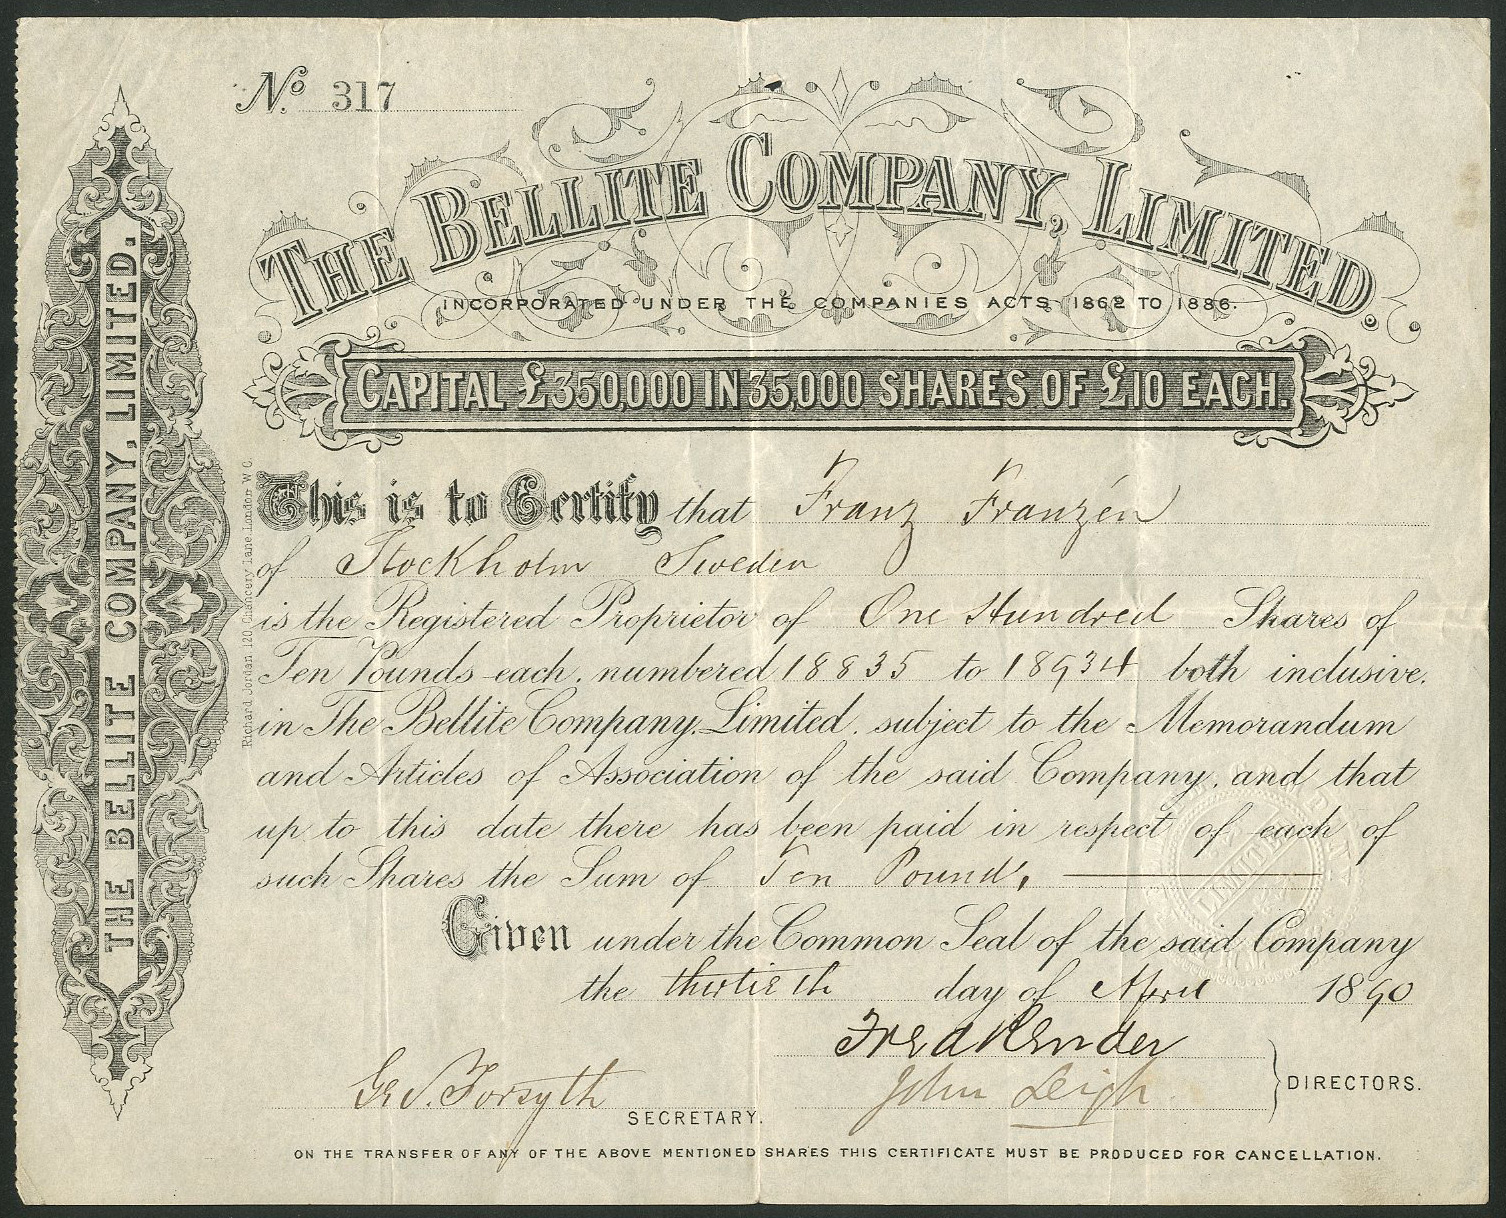 No. 317
THE BELLITE COMPANY, LIMITED.
INCORPORATED UNDER THE COMPANIES ACTS 1862 TO 1886.
CAPITAL £350,000 IN 35,000 SHARES OF £10 EACH.
THE BELLITE COMPANY, LIMITED.
Richard Jordan, 120, Chancery Lane, London W C.
This is to Certify that Franz Franzén
of Stockholm Sweden
is the Registered Proprietor of One Hundred Shares of
Ten Pounds each, numbered 18835 to 18934 both inclusive.
in The Bellite Company, Limited, subject to the Memorandum
and Articles of Association of the said Company, and that
up to this date there has been paid in respect of each of
such Shares the Sum of Ten Pounds,
Given under the Common Seal of the said Company
the thirtieth day of April 1890
John Leigh
DIRECTORS.
Forsyth
SECRETARY.
LIMITED
ON THE TRANSFER OF ANY OF THE ABOVE MENTIONED SHARES THIS CERTIFICATE MUST BE PRODUCED FOR CANCELLATION.